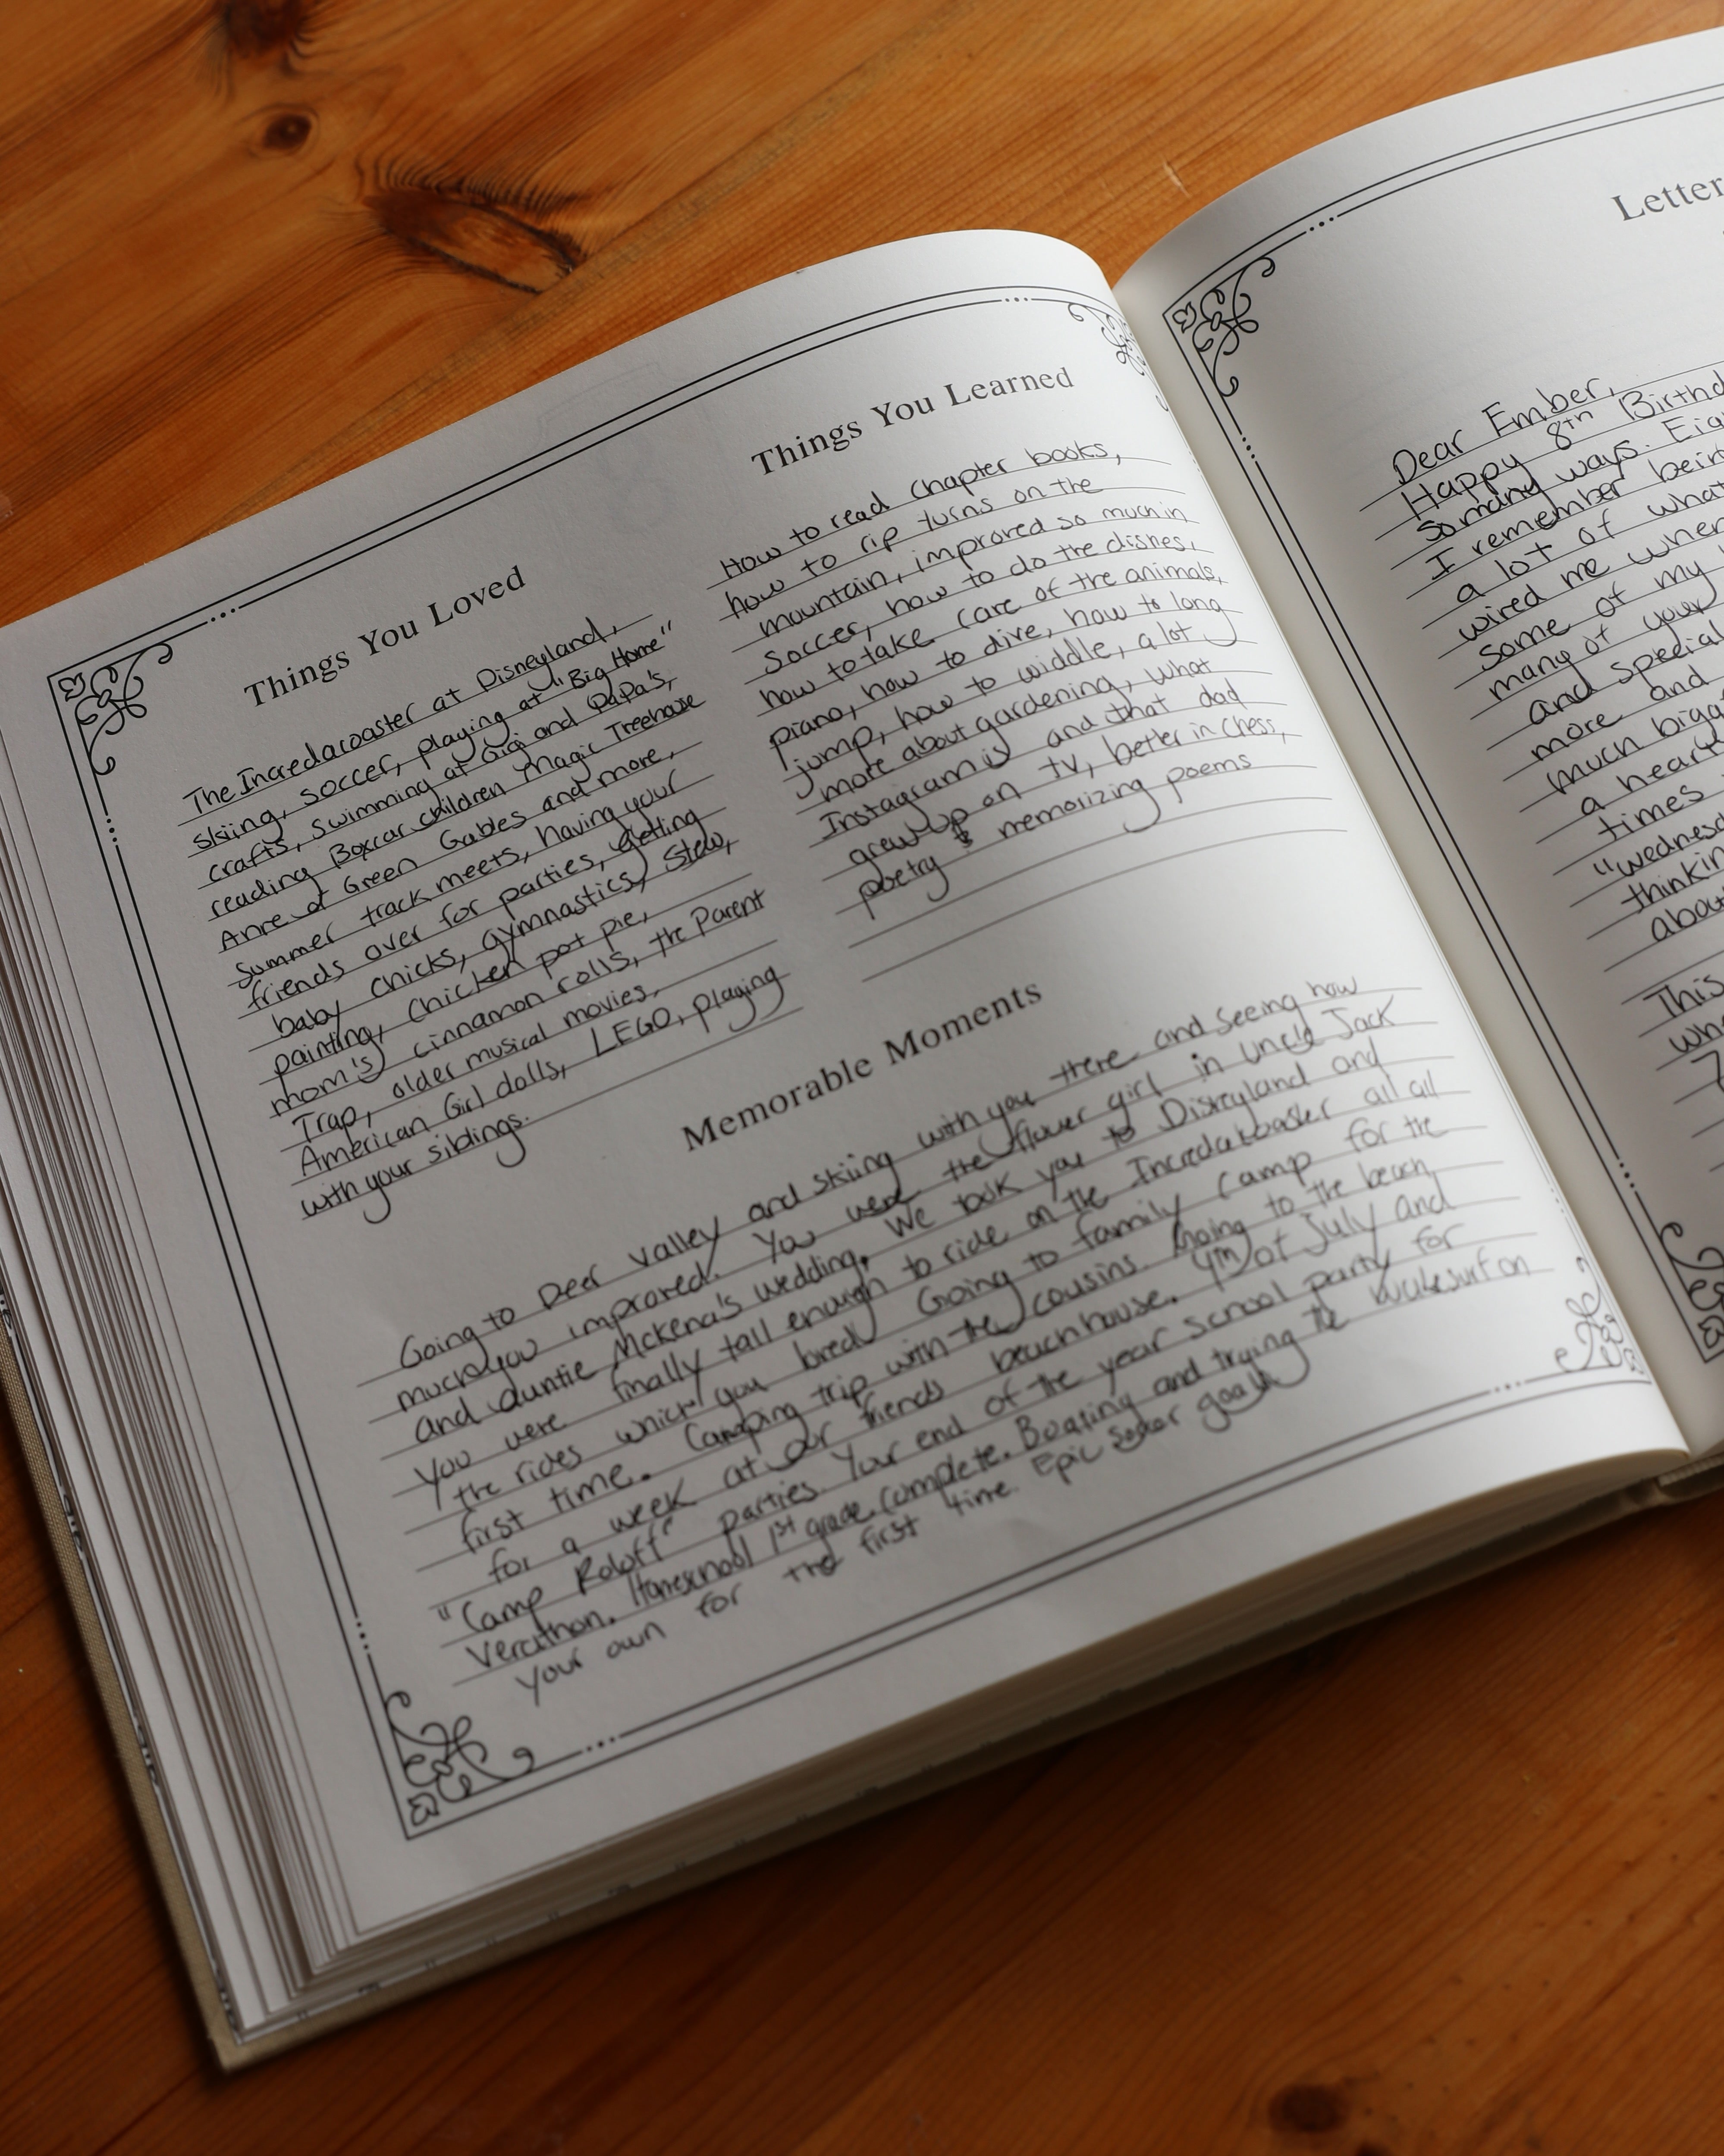 Things You Loved
The Incredacoaster at Disneyland,
skiing, soccer, playing at "Big Home"
crafts, swimming at Gigi and Papa's,
reading Boxcar children Magic Treehouse
Anne of Green Gables and more,
summer track meets, having your
friends over for parties, getting
baby chicks, gymnastics, stew,
painting, chicken pot pie,
mom's cinnamon rolls, the Parent
Trap, older musical movies,
American Girl dolls, LEGO, playing
with your siblings.
Things You Learned
How to read chapter books,
how to rip turns on the
mountain, improved so much in
soccer, how to do the dishes,
how to take care of the animals,
piano, how to dive, how to long
jump, how to widdle, a lot
more about gardening, what
Instagram is and that dad
grew up on TV, better in chess,
poetry & memorizing poems
Memorable Moments
Going to Deer Valley and skiing with you there and seeing how
much you improved. You were the flower girl in uncle Jack
and auntie Mckena's wedding. We took you to Disneyland and
you were finally tall enough to ride on the Incredacoaster all all
the rides which you loved! Going to family camp for the
first time. Camping trip with the cousins. Going to the beach
for a week at our friends beach house. 4th of July and
"Camp Roloff" parties. Your end of the year school party for
Verathon. Homeschool 1st grade complete. Boating and trying to wakesurf on
your own for the first time. Epic soccer goals
Letter
Dear Ember,
Happy 8th Birthd
so many ways. Eig
I remember bein
a lot of what
wired me when
some of my
many of your
and special
more and
much bigg
a heart
times
"wednesd
thinkin
about
This
wh